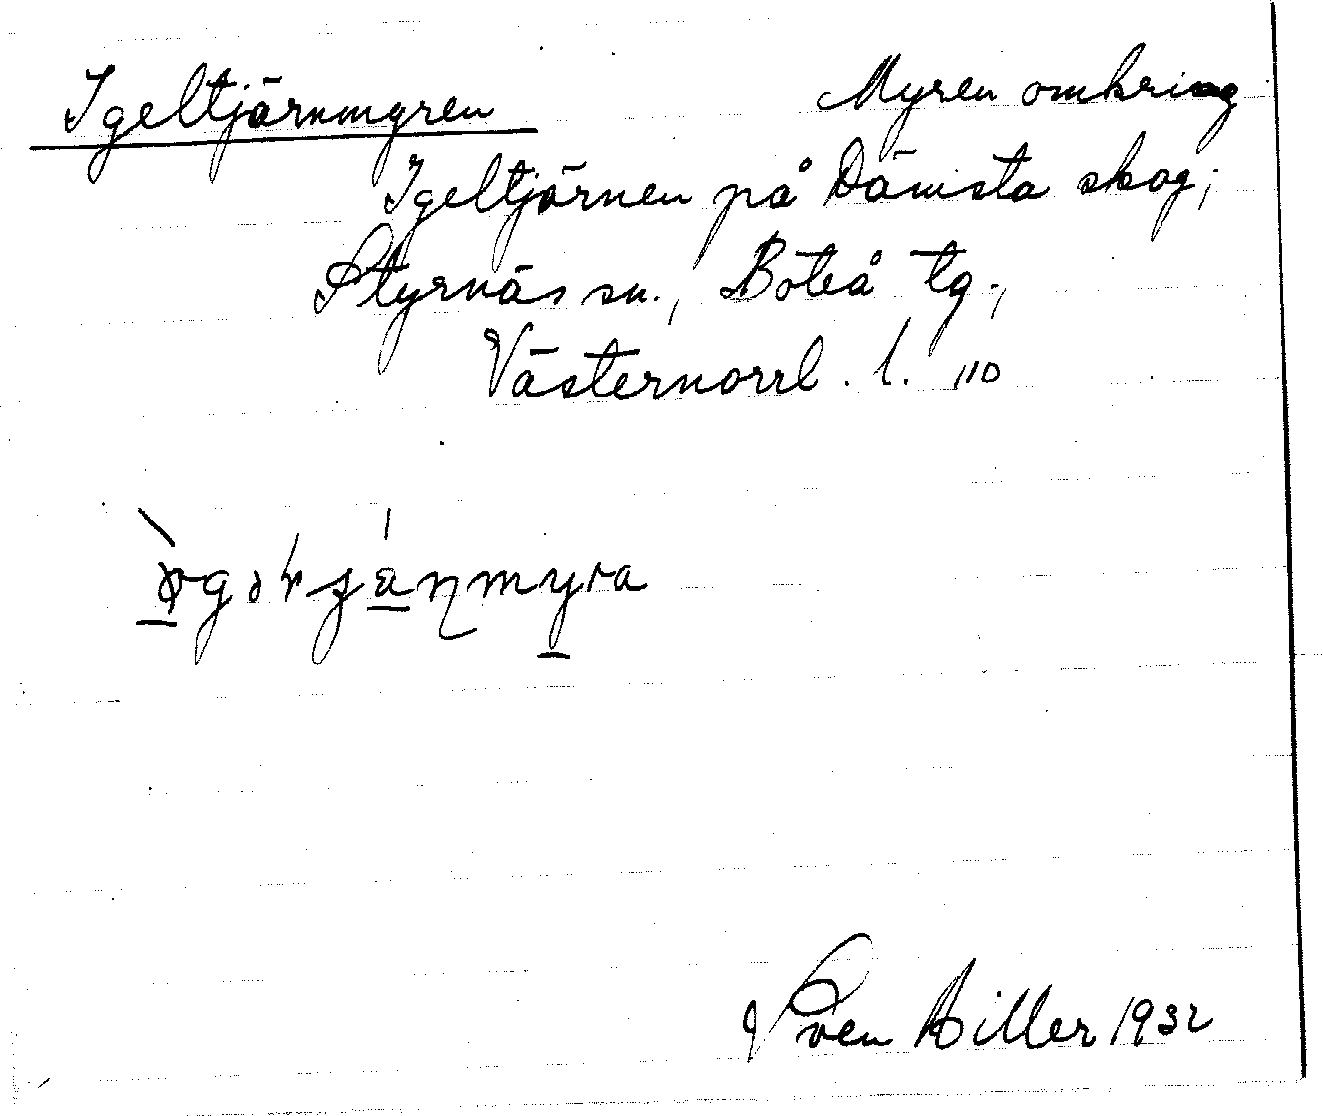 Igeltjärnmyren Myren omkring
Igeltjärnen på Dämsta skog;
Styrnäs sn., Boteå tg.,
Västernorrl. l.
Sven Hiller 1932